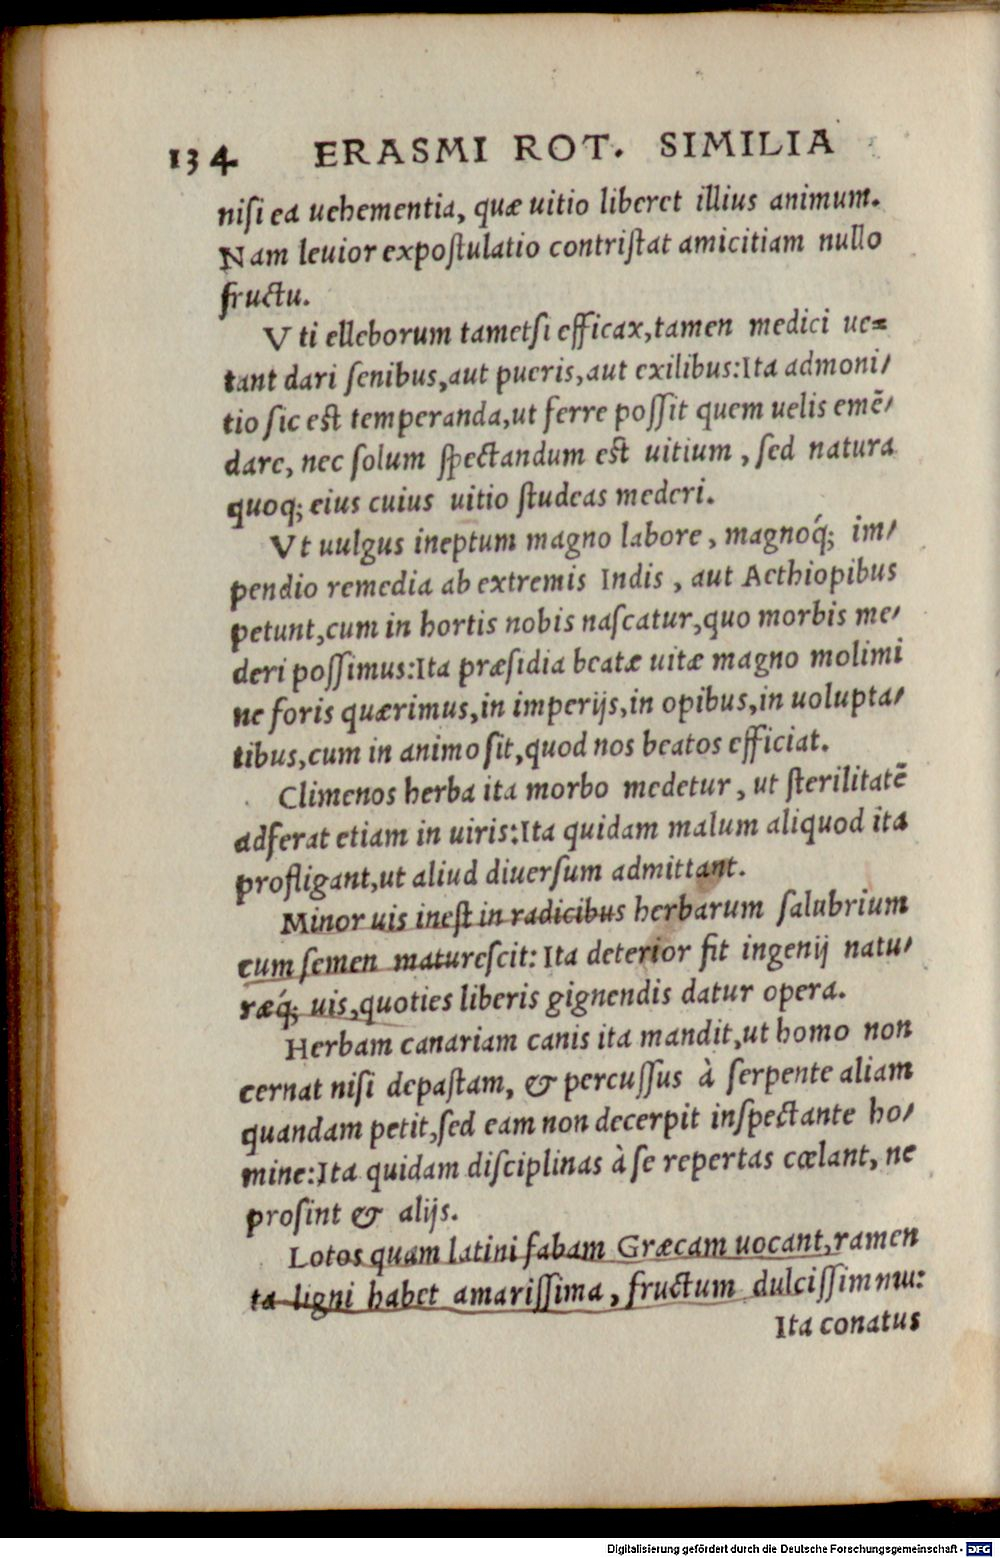 134 ERASMI ROT. SIMILIA
niſi ea uehementia, quæ uitio liberet illius animum.
Nam leuior expoſtulatio contriſtat amicitiam nullo
fructu.
Vti elleborum tametſi efficax,tamen medici ue=
tant dari ſenibus,aut pueris,aut exilibus:Ita admoni/
tio ſic est temperanda,ut ferre poſſit quem uelis emē/
dare, nec ſolum ſpectandum est uitium , ſed natura
quoq; eius cuius uitio ſtudeas mederi.
Vt uulgus ineptum magno labore , magnoq́; im/
pendio remedia ab extremis Indis , aut Aethiopibus
petunt,cum in hortis nobis naſcatur,quo morbis me/
deri poſſimus:Ita præſidia beatæ uitæ magno molimi
ne foris quærimus,in imperijs,in opibus,in uolupta/
tibus,cum in animo ſit,quod nos beatos efficiat.
Climenos herba ita morbo medetur , ut ſterilitatē
adferat etiam in uiris:Ita quidam malum aliquod ita
profligant,ut aliud diuerſum admittant.
Minor uis ineſt in radicibus herbarum ſalubrium
cum ſemen matureſcit: Ita deterior fit ingenij natu/
ræq́; uis,quoties liberis gignendis datur opera.
Herbam canariam canis ita mandit,ut homo non
cernat niſi depaſtam, & percuſſus à ſerpente aliam
quandam petit,ſed eam non decerpit inſpectante ho/
mine:Ita quidam diſciplinas à ſe repertas cœlant, ne
proſint & alijs.
Lotos quam latini fabam Græcam uocant,ramen
ta ligni habet amariſſima , fructum dulciſſimnu:
Ita conatus
Digitalisierung gefördert durch die Deutsche Forschungsgemeinschaft - DFG